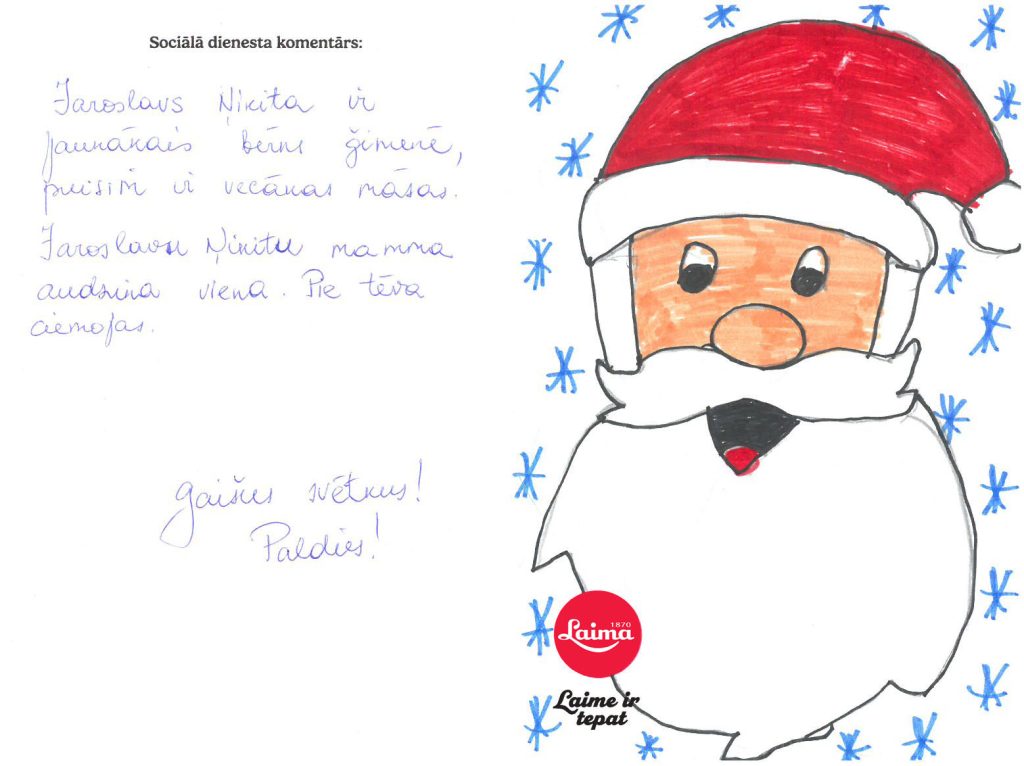 Sociālā dienesta komentārs:
Jaroslavs Ņikita ir
jaunākais bērns ģimenē,
puisim ir vecākas māsas.
Jaroslavu Ņikitu mamma
audzina viena. Pie tēva
ciemojas.
Gaišus svētkus!
Paldies!
1870
Laima
Laime ir
tepat